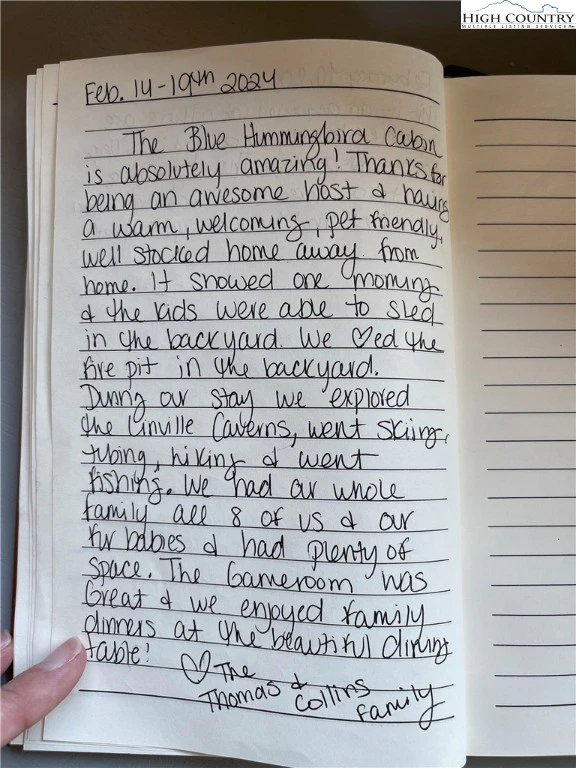 HIGH COUNTRY
MULTIPLE LISTING SERVICE
Feb. 14-19th 2024
The Blue Hummingbird Cabin
is absolutely amazing! Thanks for
being an awesome host & having
a warm, welcoming, pet friendly,
well stocked home away from
home. It snowed one morning
& the kids were able to sled
in the backyard. We ♡ed the
fire pit in the backyard.
During our stay we explored
the Linville Caverns, went skiing,
tubing, hiking & went
fishing. We had our whole
family all 8 of us & our
fur babies & had plenty of
space. The Gameroom was
Great & we enjoyed family
dinners at the beautiful dining
table!
♡ The
Thomas & Collins Family